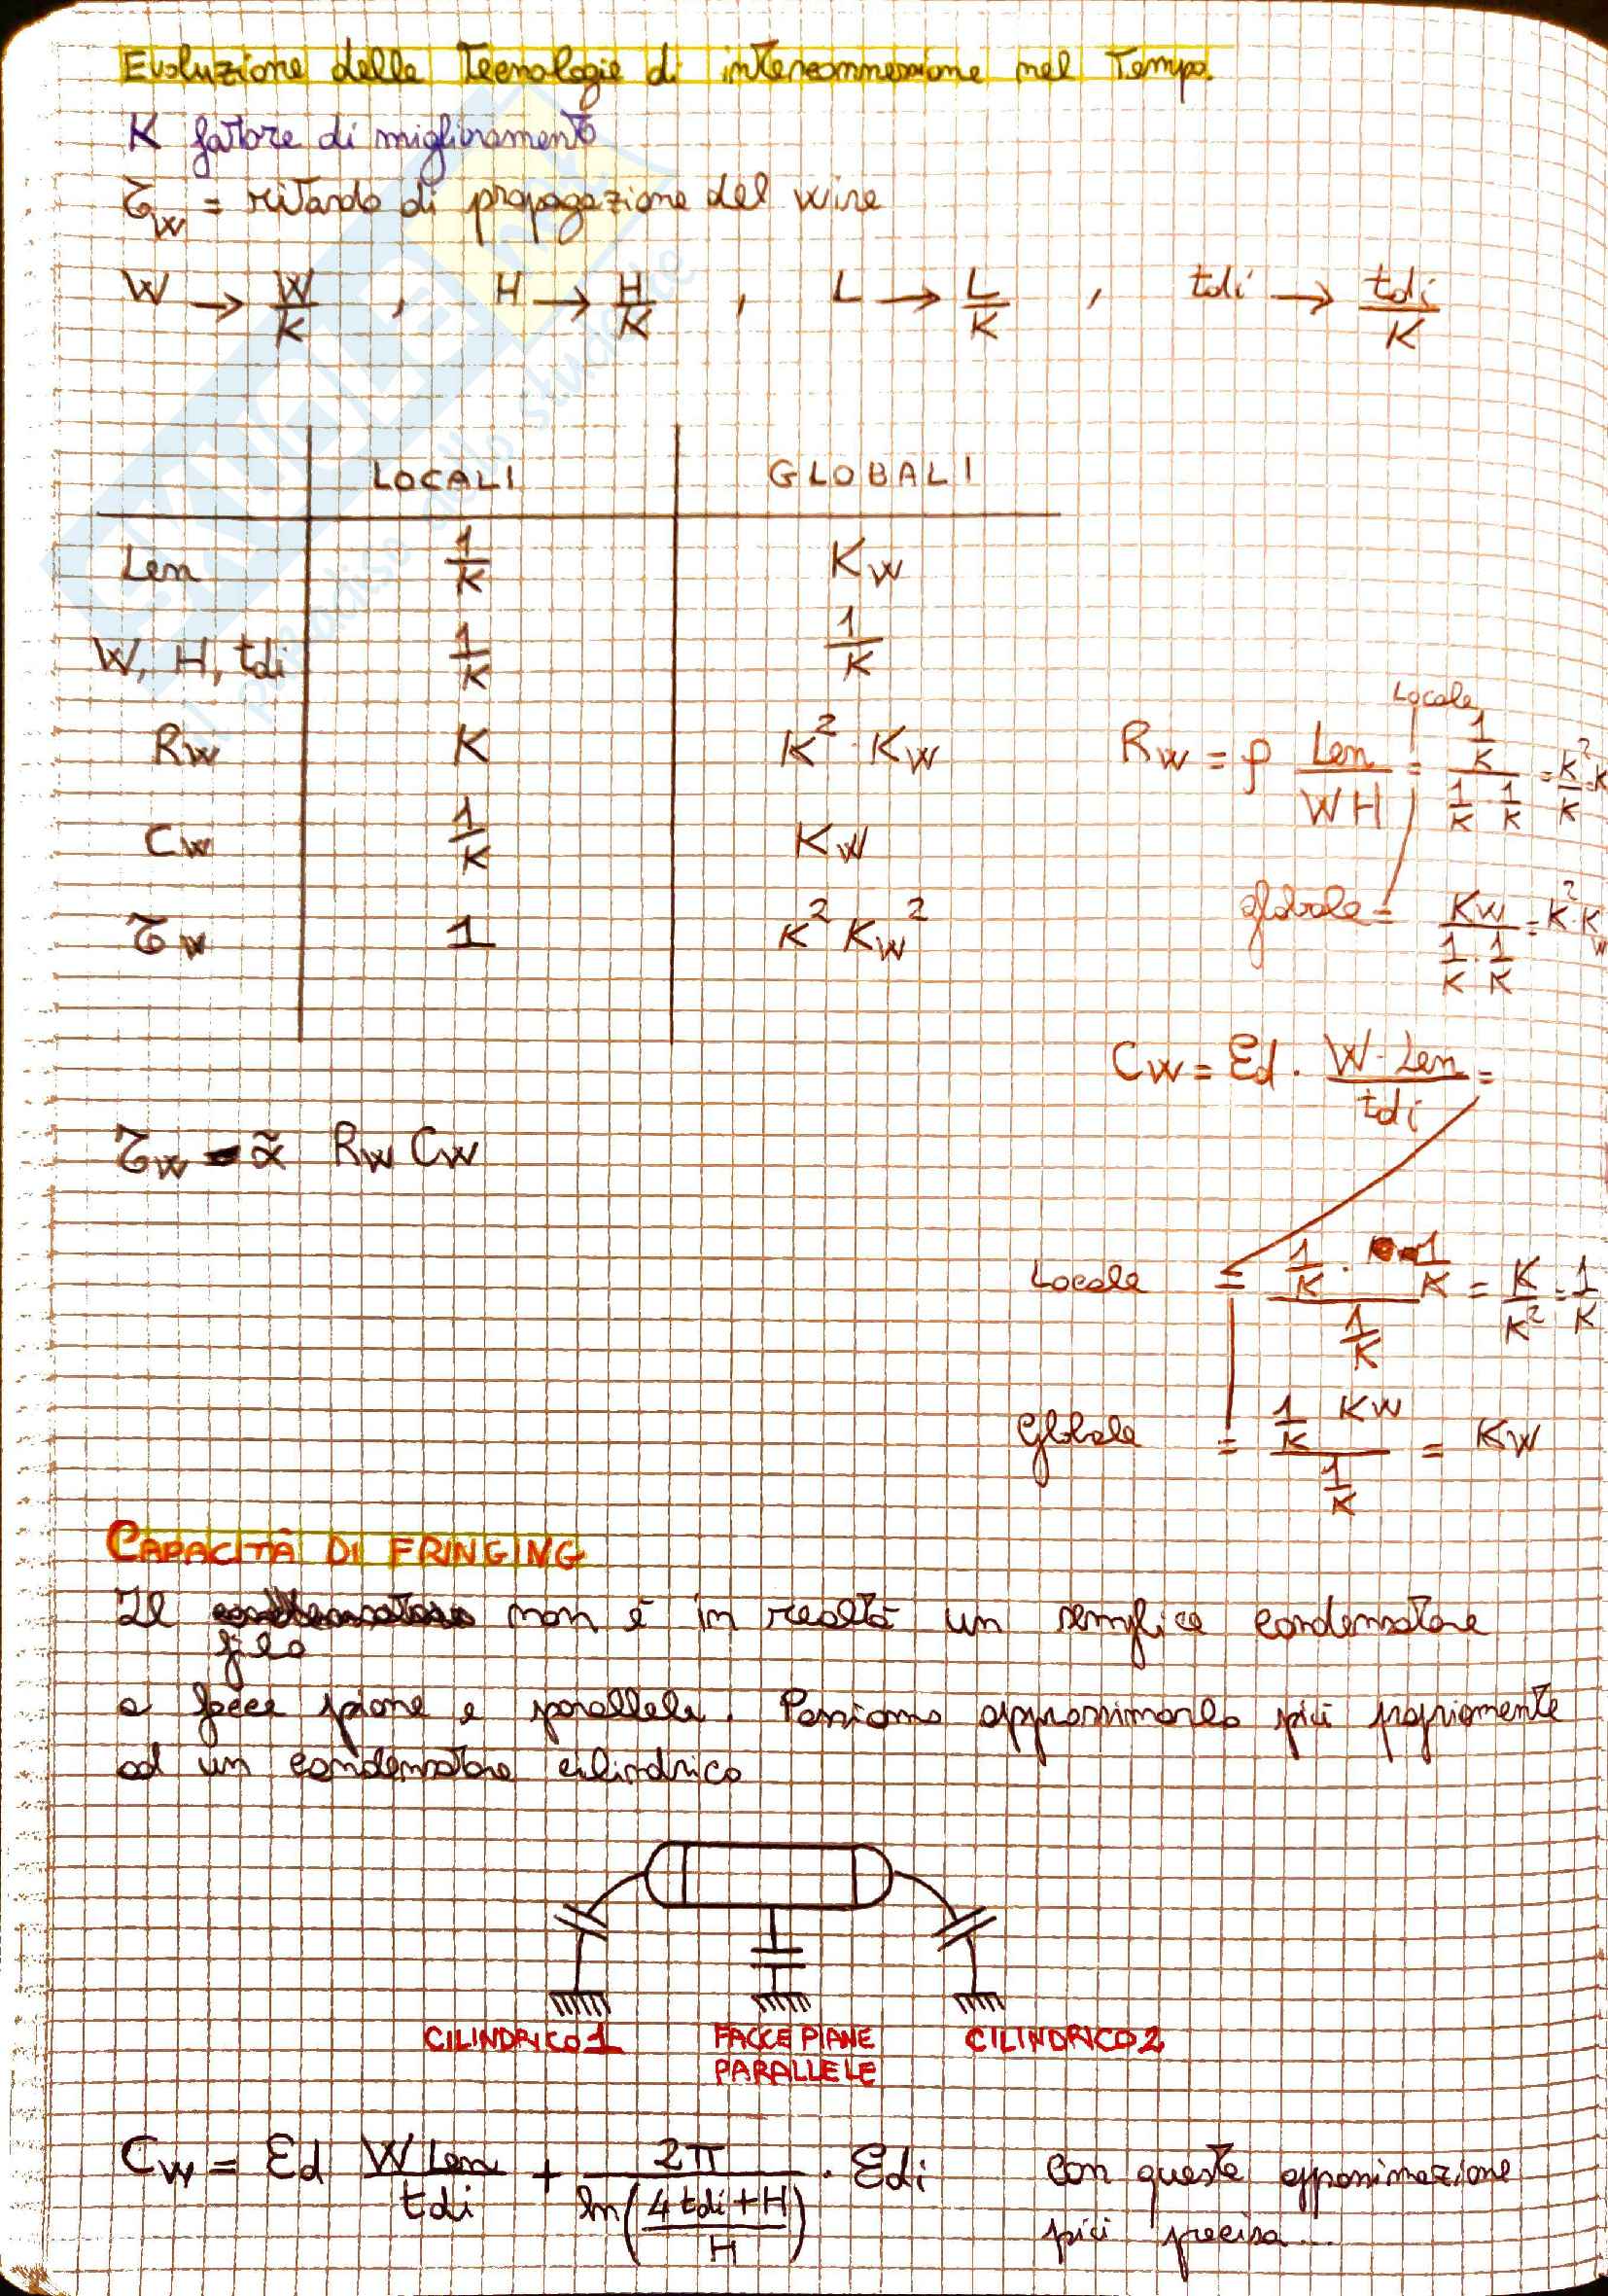 Evoluzione delle Tecnologie di interconnessione nel Tempo
K fattore di miglioramento
τw = ritardo di propagazione del wire
W → W/K , H → H/K , L → L/K , tdi → tdi/K
LOCALI GLOBALI
Len 1/K Kw
W, H, tdi 1/K 1/K
Rw K K² · Kw
Cw 1/K Kw
τw 1 K² Kw²
Locale
Rw = ρ Len/WH = (1/K)/(1/K · 1/K) = K²/K = K
globale = Kw/(1/K · 1/K) = K² · Kw
Cw = Ed · W · Len/tdi =
τw ≈ Rw Cw
Locale = (1/K · 1/K)/(1/K) = K/K² = 1/K
Globale = (1/K Kw)/(1/K) = Kw
CAPACITÀ DI FRINGING
Il filo non è in realtà un semplice condensatore
a facce piane e parallele. Possiamo approssimarlo più propriamente
ad un condensatore cilindrico
CILINDRICO 1 FACCE PIANE PARALLELE CILINDRICO 2
Cw = Ed W Len/tdi + 2π/ln((4tdi+H)/H) · Edi con questa approssimazione
più precisa...
SKUOLA.net
il paradiso dello studente